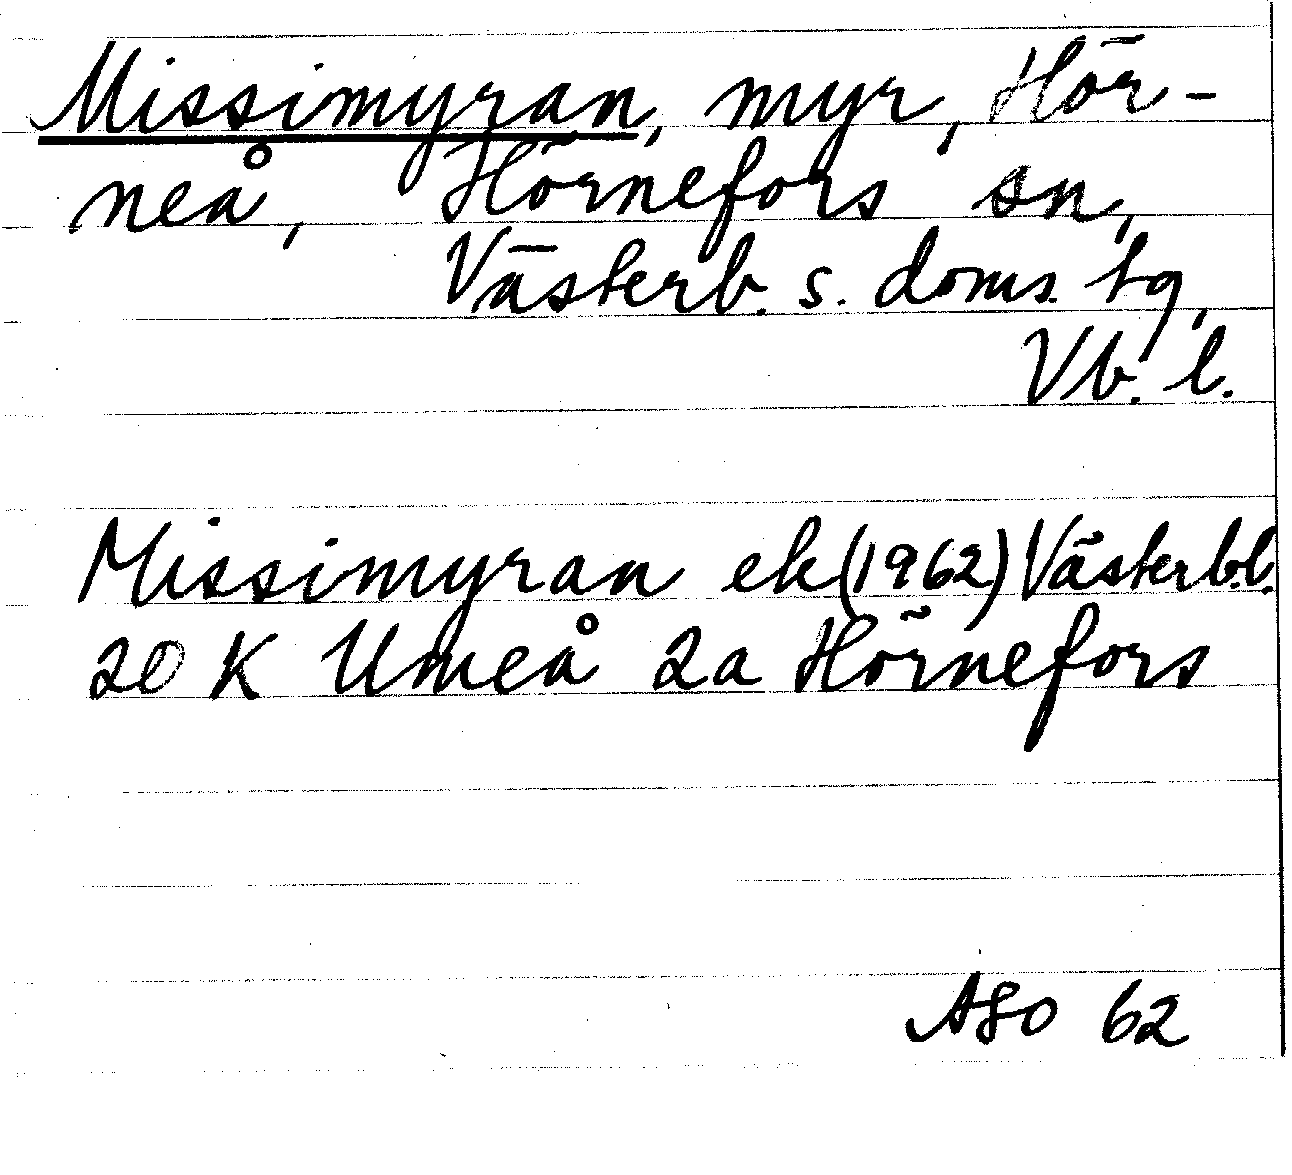 Missimyran, myr, Hör-
neå, Hörnefors sn,
Västerb. s. doms. tg,
Vb. l.
Missimyran ek (1962) Västerb.l.
20 K Umeå 2a Hörnefors
ASO 62